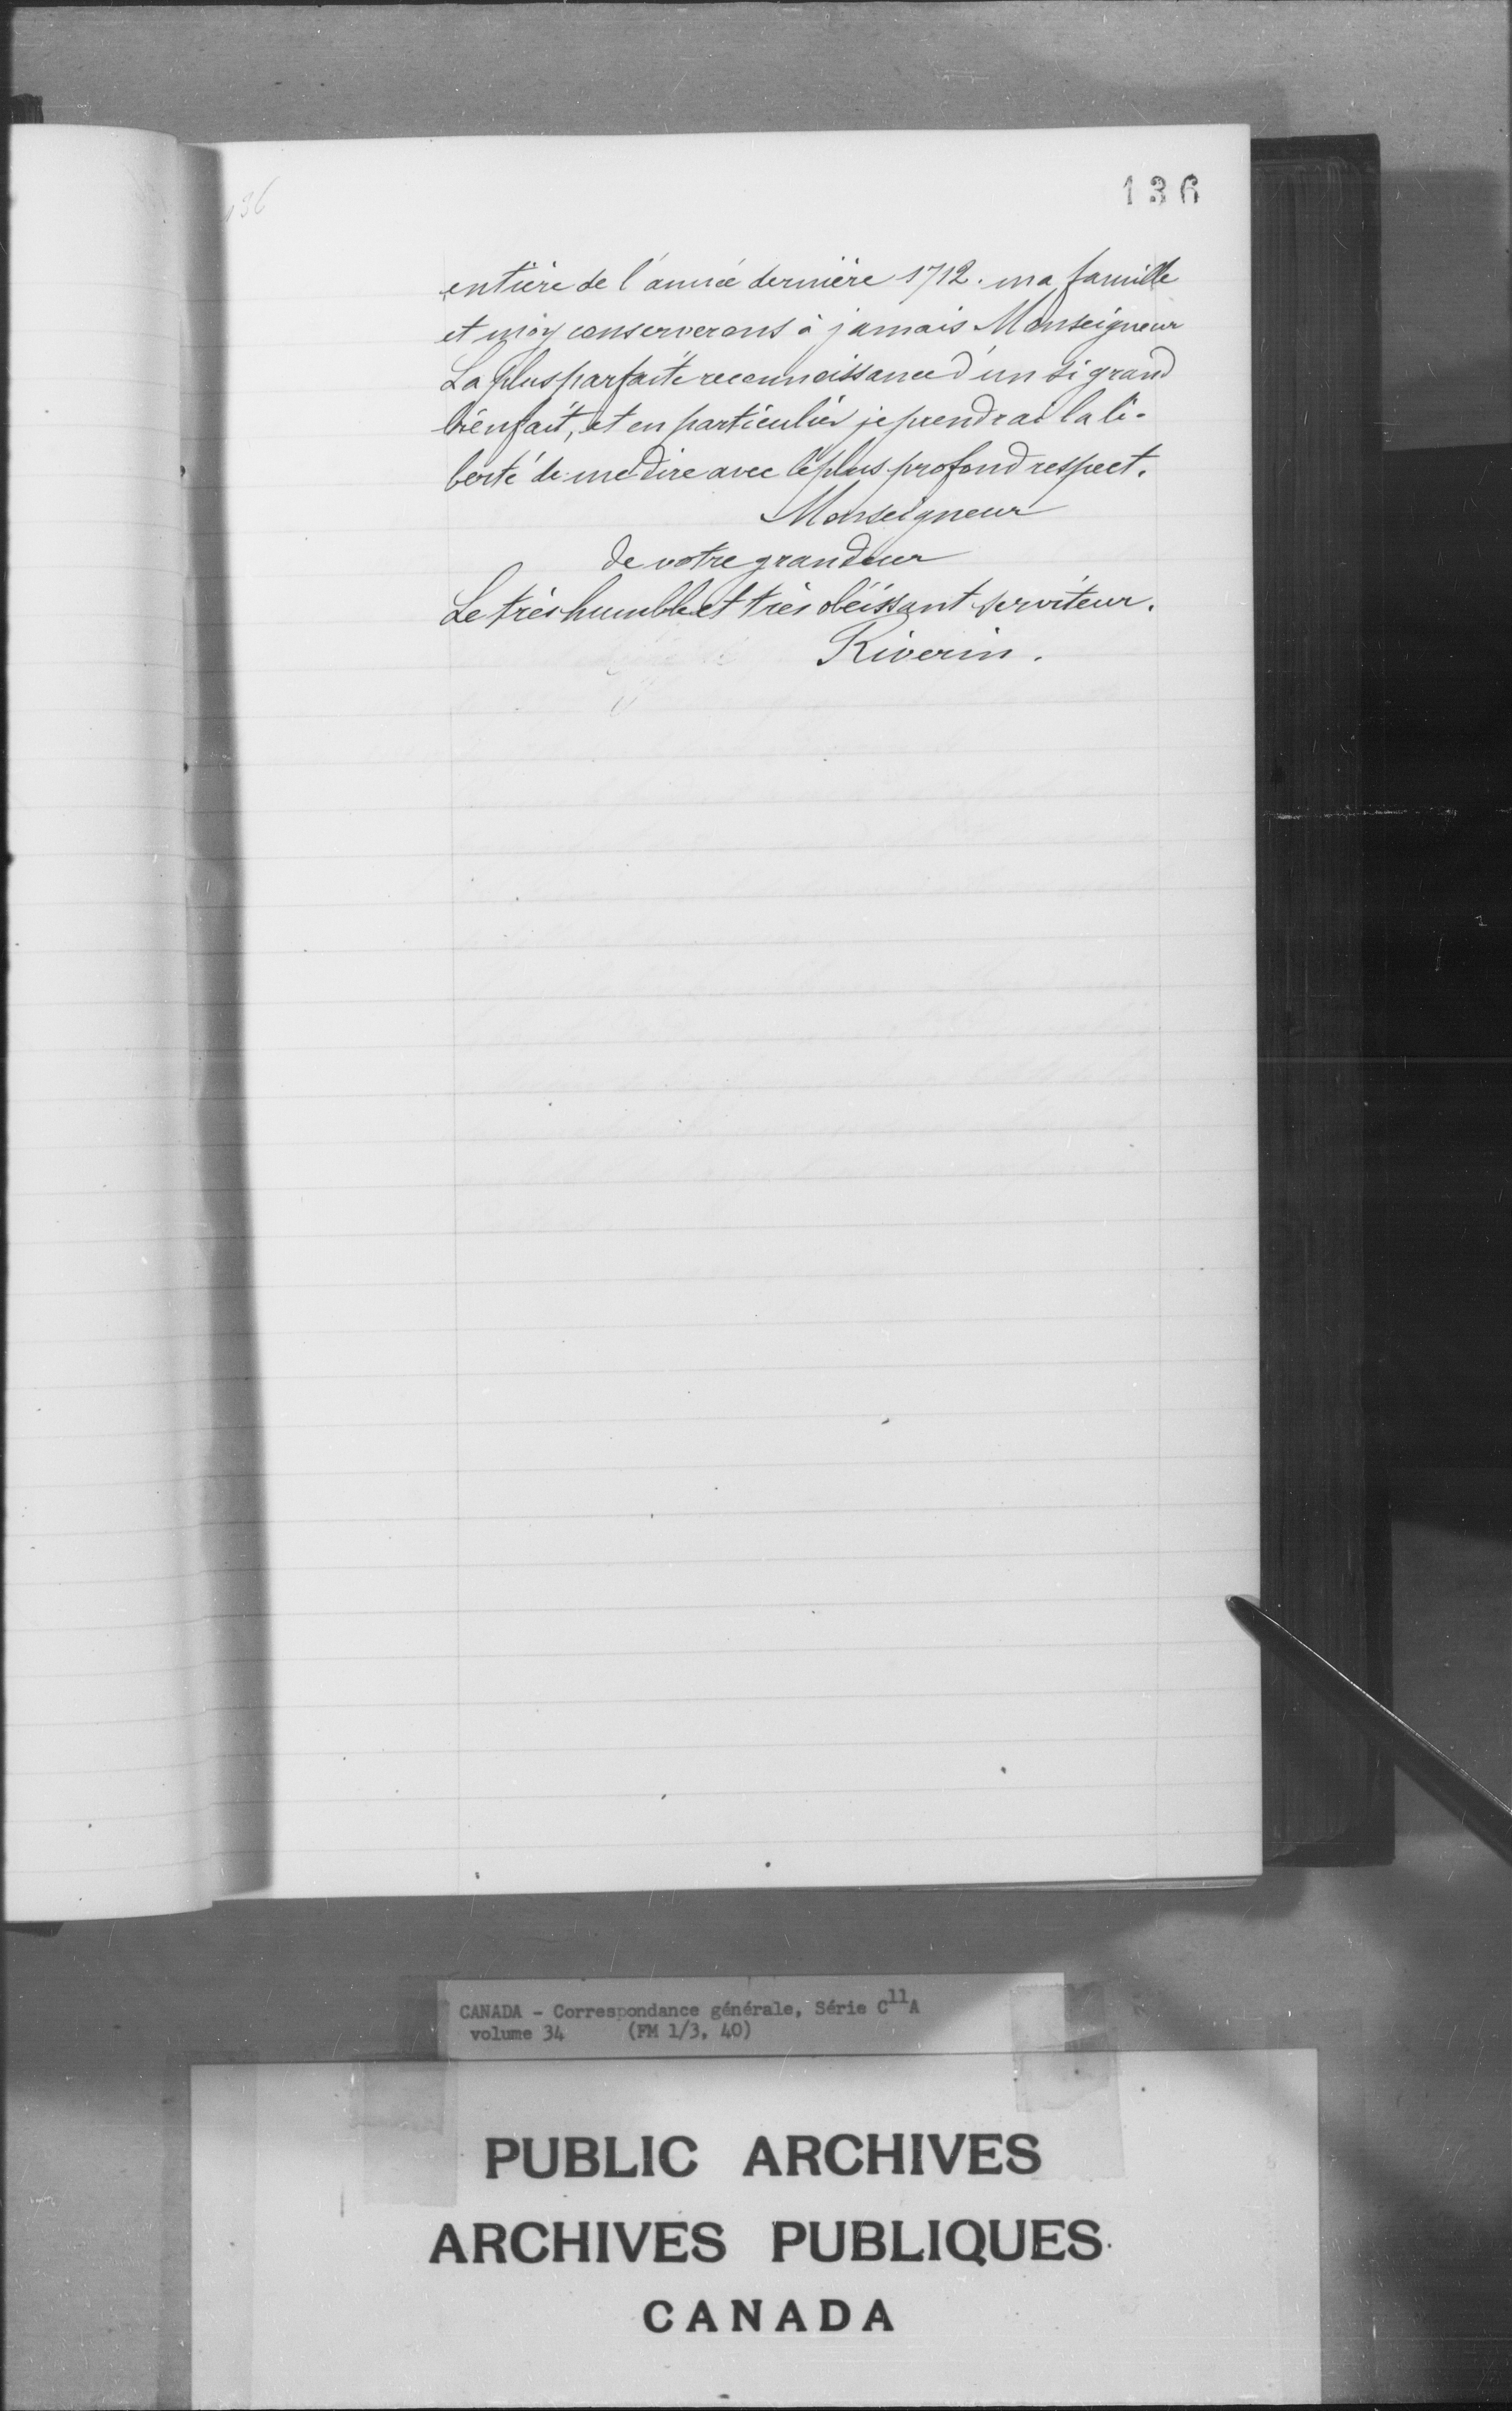 136
136
entière de l'année dernière 1712. ma famille
et moy conserverons à jamais Monseigneur
La plus parfaite reconnoissance d'un si grand
bienfait, et en particulier je prendrai la li-
berté de me dire avec le plus profond respect.
Monseigneur
de votre grandeur
Le très humble et très obéissant serviteur.
Riverin.
CANADA - Correspondance générale, Série C11A
volume 34 (FM 1/3, 40)
PUBLIC ARCHIVES
ARCHIVES PUBLIQUES
CANADA